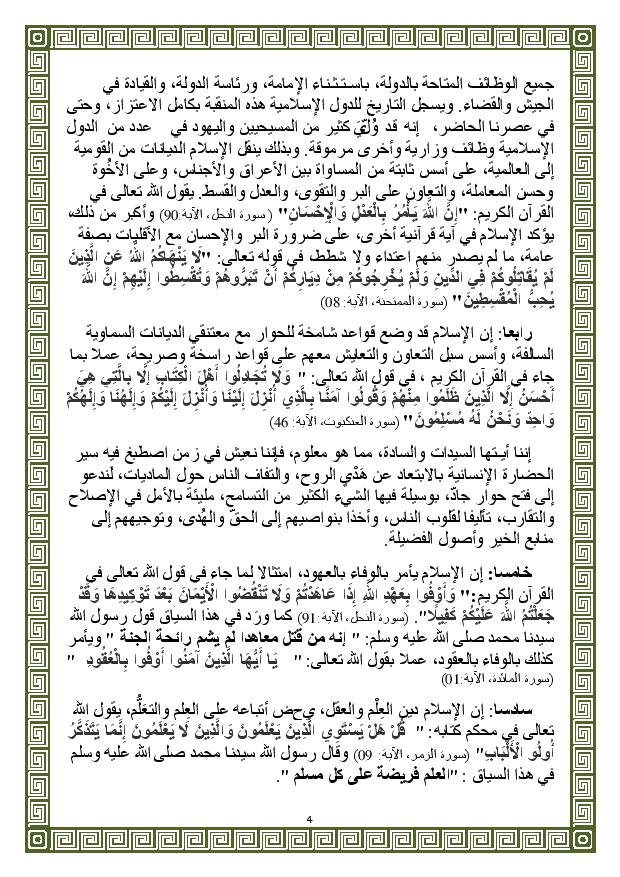 جميع الوظائف المتاحة بالدولة، باستثناء الإمامة، ورئاسة الدولة، والقيادة في
الجيش والقضاء. ويسجل التاريخ للدول الإسلامية هذه المنقبة بكامل الاعتزاز، وحتى
في عصرنا الحاضر، إنه قد وُلِّيَ كثير من المسيحيين واليهود في عدد من الدول
الإسلامية وظائف وزارية وأخرى مرموقة. وبذلك ينقل الإسلام الديانات من القومية
إلى العالمية، على أسس ثابتة من المساواة بين الأعراق والأجناس، وعلى الأخُوة
وحسن المعاملة، والتعاون على البر والتقوى، والعدل والقسط. يقول الله تعالى في
القرآن الكريم: "إِنَّ اللَّهَ يَأْمُرُ بِالْعَدْلِ وَالْإِحْسَانِ" (سورة النحل، الآية:90) وأكبر من ذلك،
يؤكد الإسلام في آية قرآنية أخرى، على ضرورة البر والإحسان مع الأقليات بصفة
عامة، ما لم يصدر منهم اعتداء ولا شطط، في قوله تعالى: "لَا يَنْهَاكُمُ اللَّهُ عَنِ الَّذِينَ
لَمْ يُقَاتِلُوكُمْ فِي الدِّينِ وَلَمْ يُخْرِجُوكُمْ مِنْ دِيَارِكُمْ أَنْ تَبَرُّوهُمْ وَتُقْسِطُوا إِلَيْهِمْ إِنَّ اللَّهَ
يُحِبُّ الْمُقْسِطِينَ" (سورة الممتحنة، الآية:08)
رابعا: إن الإسلام قد وضع قواعد شامخة للحوار مع معتنقي الديانات السماوية
السالفة، وأسس سبل التعاون والتعايش معهم على قواعد راسخة وصريحة، عملا بما
جاء في القرآن الكريم ، في قول الله تعالى: " وَلَا تُجَادِلُوا أَهْلَ الْكِتَابِ إِلَّا بِالَّتِي هِيَ
أَحْسَنُ إِلَّا الَّذِينَ ظَلَمُوا مِنْهُمْ وَقُولُوا آمَنَّا بِالَّذِي أُنْزِلَ إِلَيْنَا وَأُنْزِلَ إِلَيْكُمْ وَإِلَهُنَا وَإِلَهُكُمْ
وَاحِدٌ وَنَحْنُ لَهُ مُسْلِمُونَ" (سورة العنكبوت، الآية: 46)
إننا أيتها السيدات والسادة، مما هو معلوم، فإننا نعيش في زمن اصطبغ فيه سير
الحضارة الإنسانية بالابتعاد عن هَدْي الروح، والتفاف الناس حول الماديات، لَندعو
إلى فتح حوار جادّ، بوسيلة فيها الشيء الكثير من التسامح، مليئة بالأمل في الإصلاح
والتقارب، تأليفا لقلوب الناس، وأخذا بنواصيهم إلى الحقّ والهُدى، وتوجيههم إلى
منابع الخير وأصول الفضيلة.
خامسا: إن الإسلام يأمر بالوفاء بالعهود، امتثالا لما جاء في قول الله تعالى في
القرآن الكريم:" وَأَوْفُوا بِعَهْدِ اللَّهِ إِذَا عَاهَدْتُمْ وَلَا تَنْقُضُوا الْأَيْمَانَ بَعْدَ تَوْكِيدِهَا وَقَدْ
جَعَلْتُمُ اللَّهَ عَلَيْكُمْ كَفِيلًا". (سورة النحل، الآية:91) كما ورَد في هذا السياق قول رسول الله
سيدنا محمد صلى الله عليه وسلم: " إنه من قَتل معاهدا لم يشم رائحة الجنة " ويأمر
كذلك بالوفاء بالعقود، عملا بقول الله تعالى: " يَا أَيُّهَا الَّذِينَ آمَنُوا أَوْفُوا بِالْعُقُودِ "
(سورة المائدة، الآية:01)
سادسا: إن الإسلام دين العلْم والعقل، يحض أتباعه على العلم والتعَلُّم، يقول الله
تعالى في محكم كتابه: " قُلْ هَلْ يَسْتَوِي الَّذِينَ يَعْلَمُونَ وَالَّذِينَ لَا يَعْلَمُونَ إِنَّمَا يَتَذَكَّرُ
أُولُو الْأَلْبَابِ" (سورة الزمر، الآية: 09) وقال رسول الله سيدنا محمد صلى الله عليه وسلم
في هذا السياق : "العلم فريضة على كل مسلم ".
4